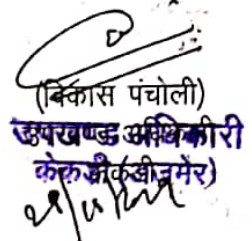 (विकास पंचोली)
उपखण्ड अधिकारी
केकड़ी (अजमेर)